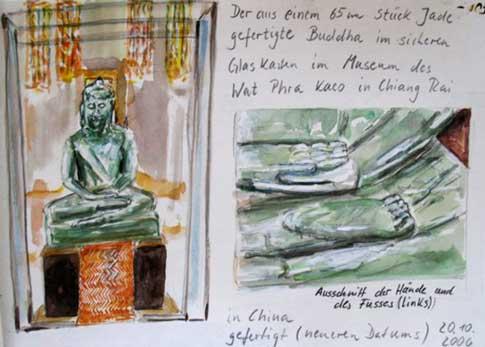 Der aus einem 65 cm Stück Jade
gefertigte Buddha im sicheren
Glaskasten im Museum des
Wat Phra Kaeo in Chiang Rai
Ausschnitt der Hände und
des Fusses (links)
in China
gefertigt (neueren Datums)
20.10.
2006